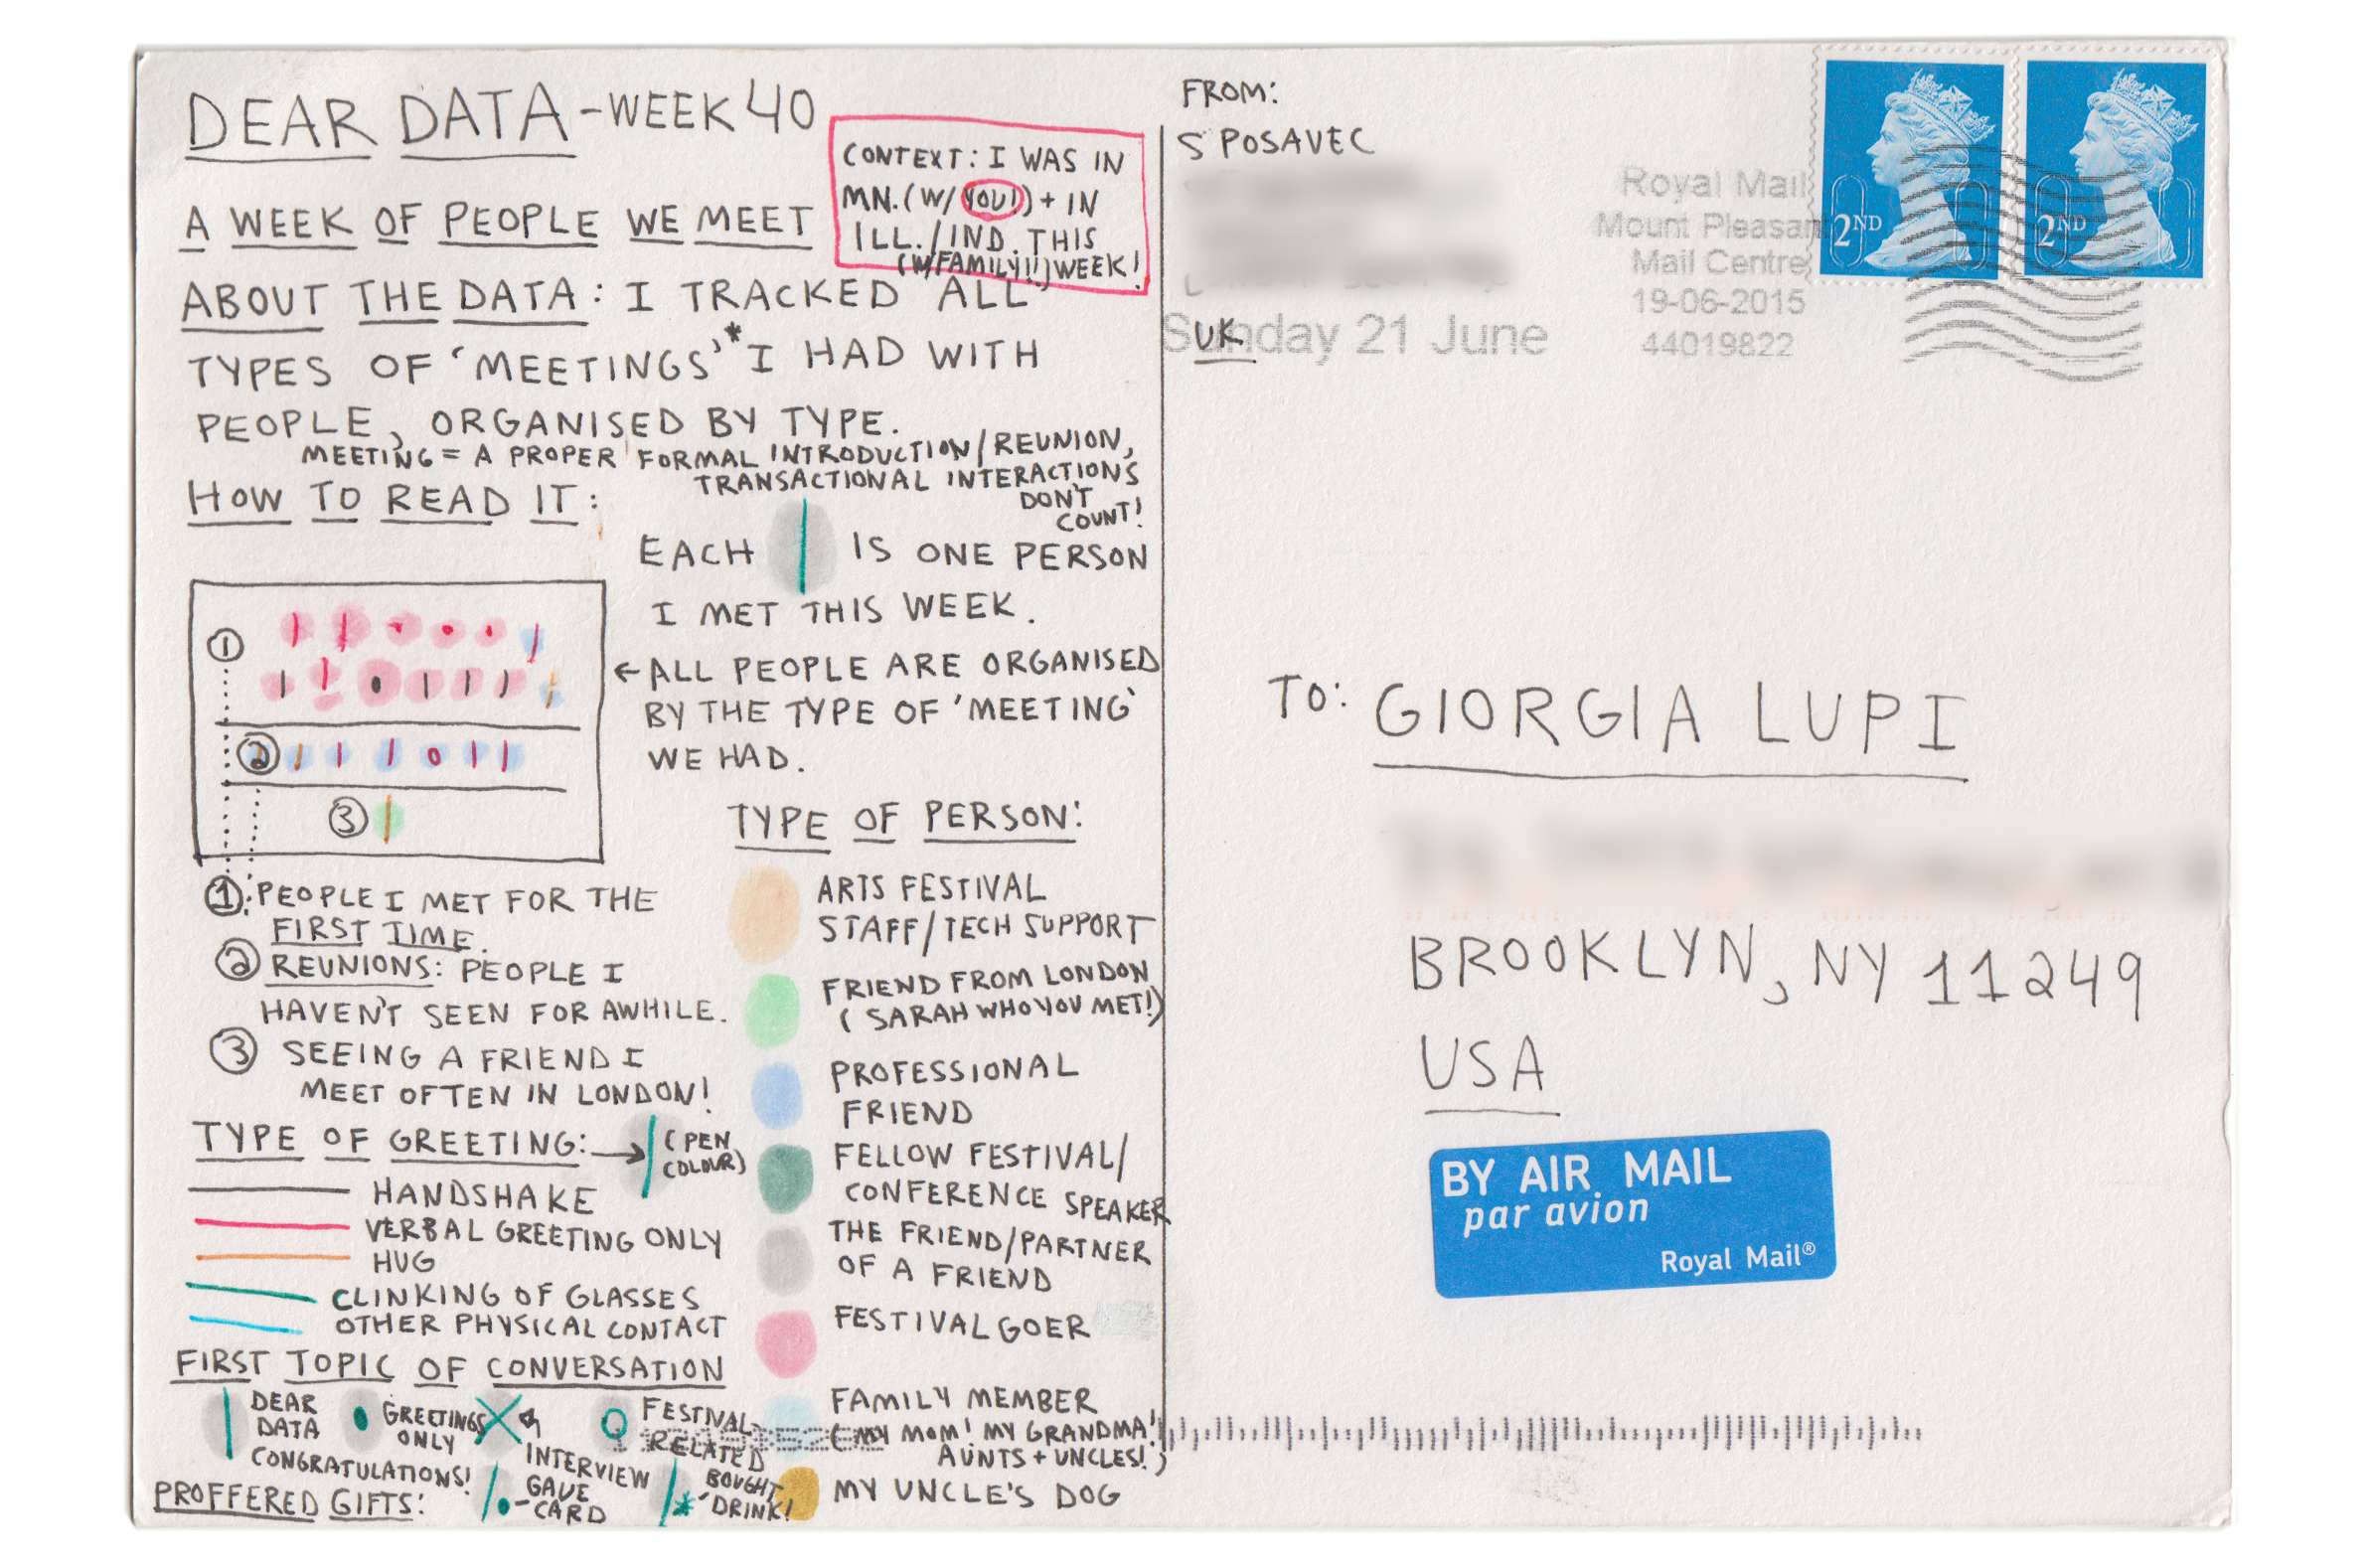 DEAR DATA - WEEK 40
CONTEXT: I WAS IN
MN. (W/ YOU!) + IN
ILL./IND. THIS
(W/FAMILY!!) WEEK!
A WEEK OF PEOPLE WE MEET
ABOUT THE DATA: I TRACKED ALL
TYPES OF 'MEETINGS'* I HAD WITH
PEOPLE, ORGANISED BY TYPE.
MEETING = A PROPER FORMAL INTRODUCTION/REUNION,
TRANSACTIONAL INTERACTIONS
DON'T
COUNT!
HOW TO READ IT:
EACH IS ONE PERSON
I MET THIS WEEK.
1
2
3
← ALL PEOPLE ARE ORGANISED
BY THE TYPE OF 'MEETING'
WE HAD.
1: PEOPLE I MET FOR THE
FIRST TIME.
2 REUNIONS: PEOPLE I
HAVEN'T SEEN FOR AWHILE.
3 SEEING A FRIEND I
MEET OFTEN IN LONDON!
TYPE OF GREETING: → (PEN
COLOUR)
HANDSHAKE
VERBAL GREETING ONLY
HUG
CLINKING OF GLASSES
OTHER PHYSICAL CONTACT
FIRST TOPIC OF CONVERSATION
DEAR
DATA
CONGRATULATIONS!
GREETINGS
ONLY
INTERVIEW
FESTIVAL-
RELATED
PROFFERED GIFTS:
GAVE
CARD
BOUGHT
DRINK!
TYPE OF PERSON:
ARTS FESTIVAL
STAFF/TECH SUPPORT
FRIEND FROM LONDON
(SARAH WHO YOU MET!)
PROFESSIONAL
FRIEND
FELLOW FESTIVAL/
CONFERENCE SPEAKER
THE FRIEND/PARTNER
OF A FRIEND
FESTIVAL GOER
FAMILY MEMBER
(MY MOM! MY GRANDMA!
AUNTS + UNCLES!)
MY UNCLE'S DOG
FROM:
S POSAVEC
UK
Royal Mail
Mount Pleasant
Mail Centre
19-06-2015
44019822
Sunday 21 June
2ND
2ND
TO: GIORGIA LUPI
BROOKLYN, NY 11249
USA
BY AIR MAIL
par avion
Royal Mail®